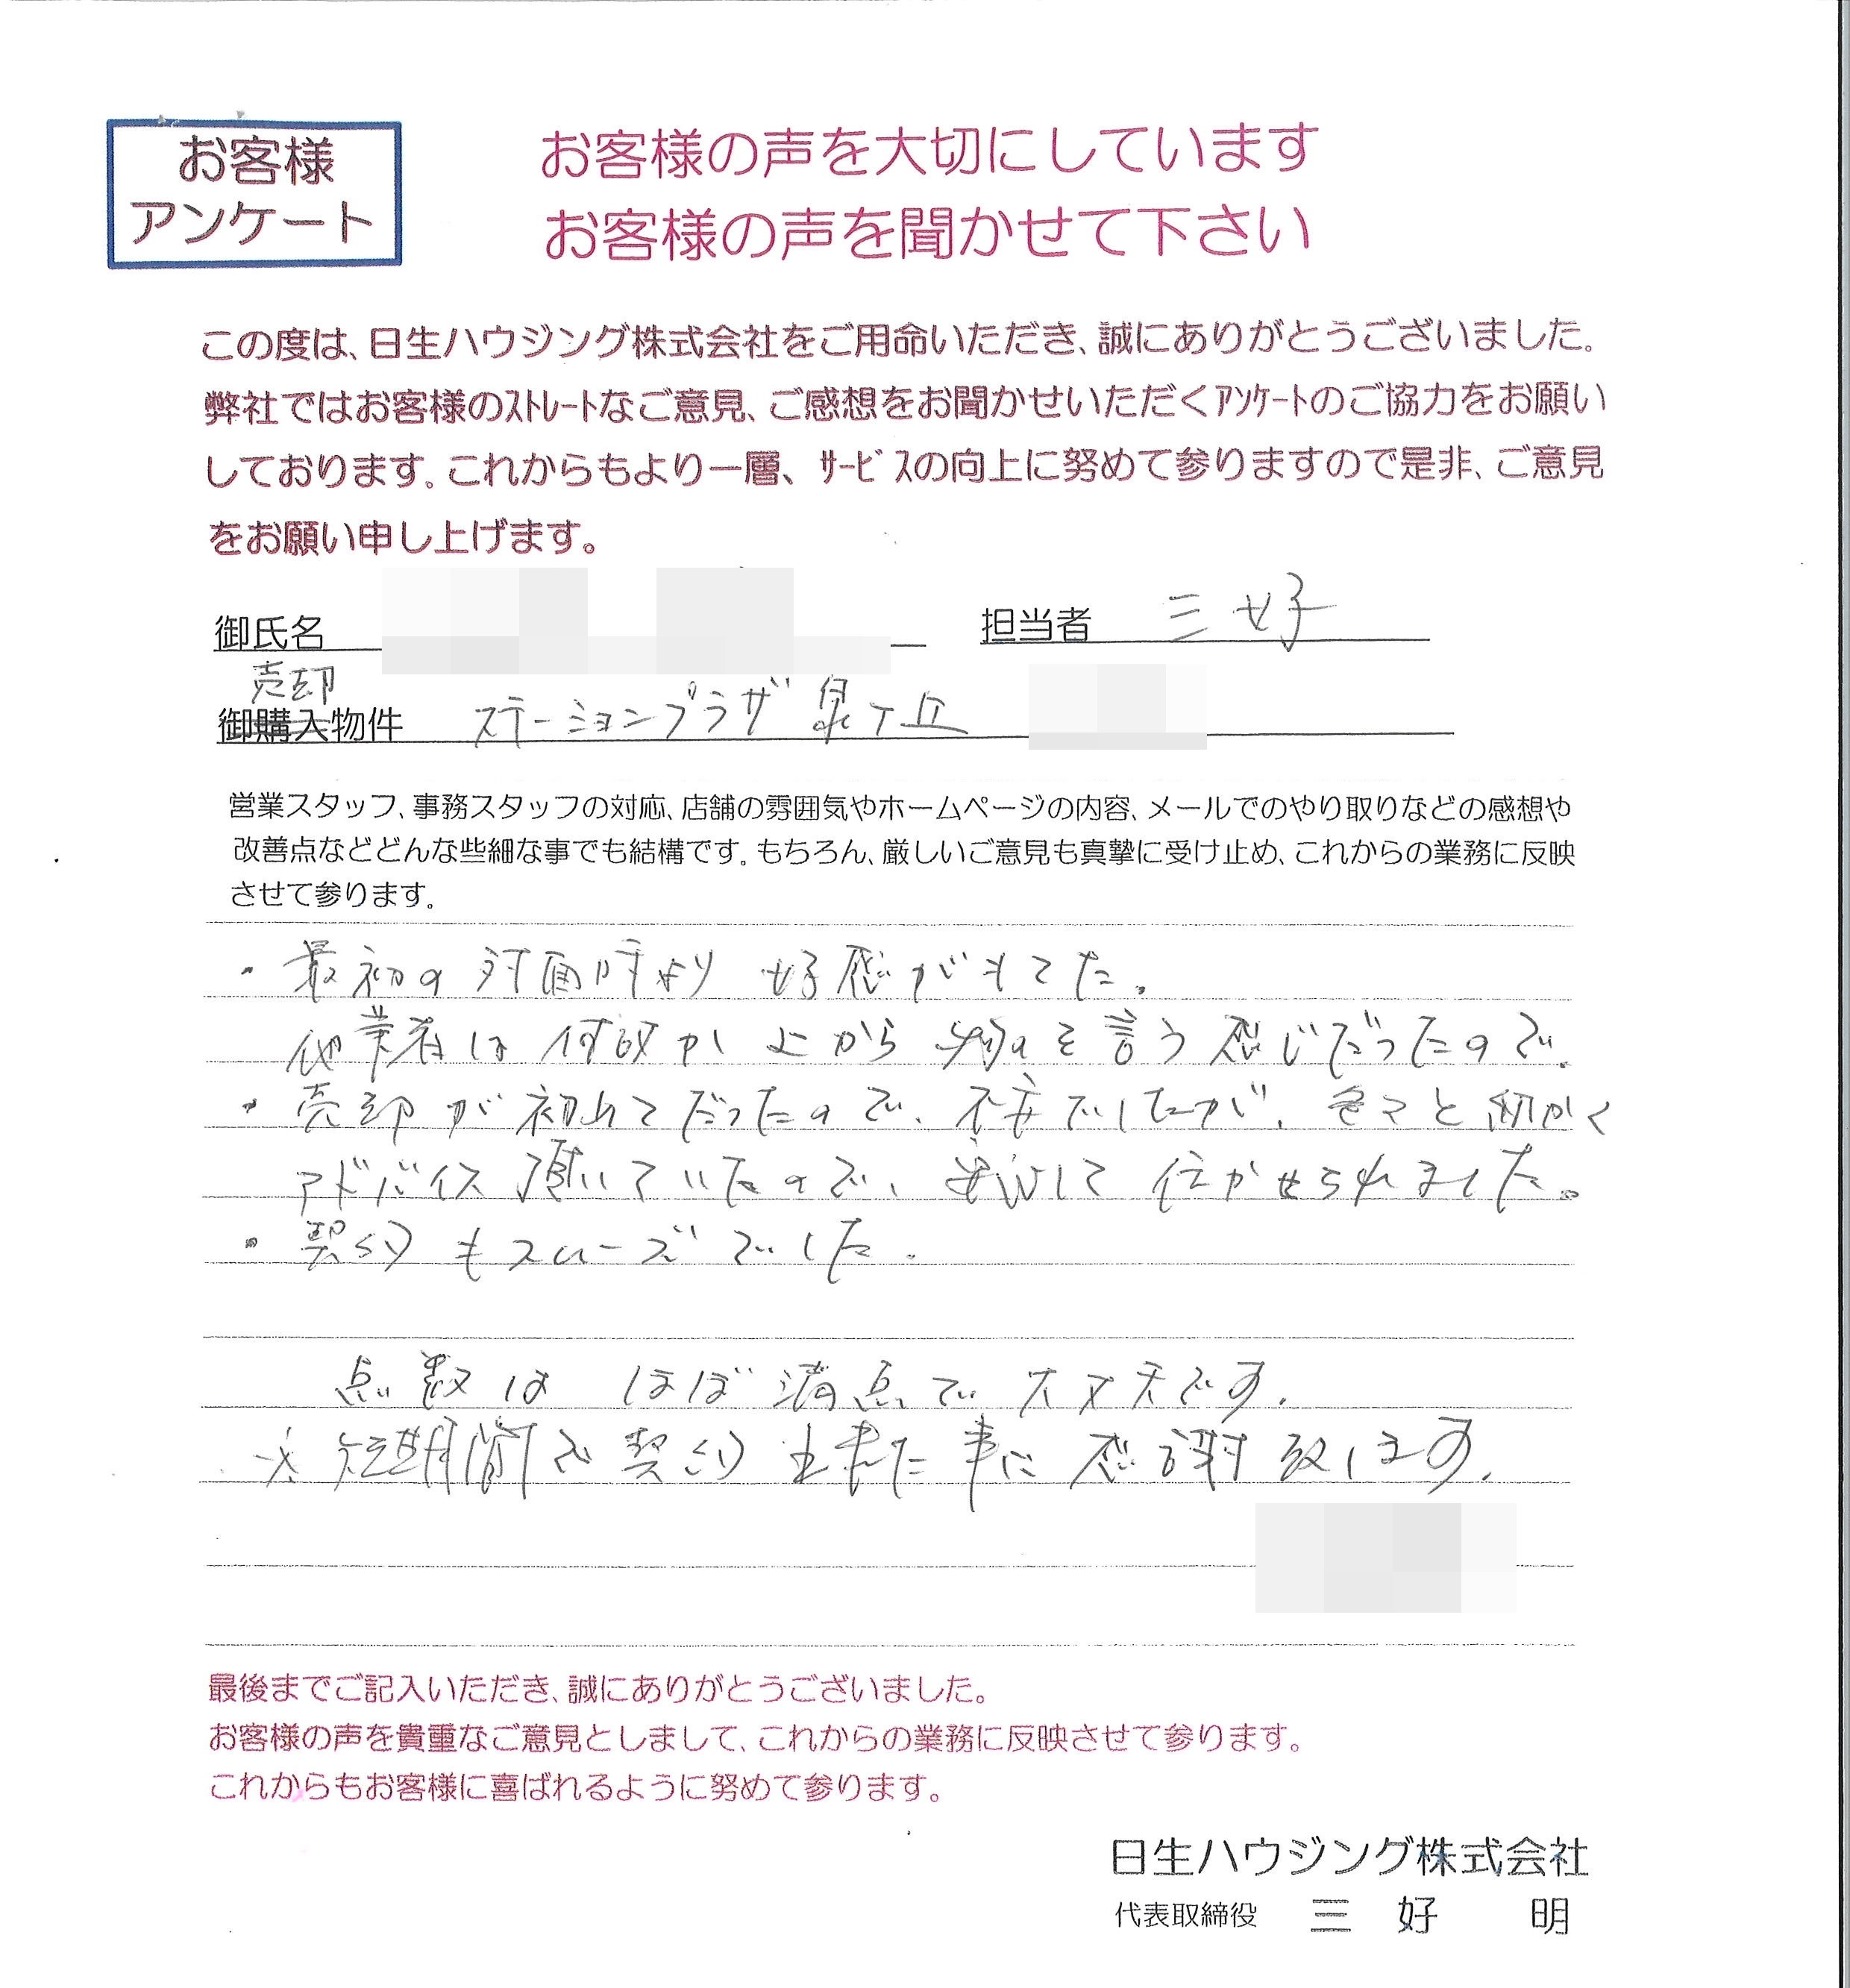 お客様
アンケート
お客様の声を大切にしています
お客様の声を聞かせて下さい
この度は、日生ハウジング株式会社をご用命いただき、誠にありがとうございました。
弊社ではお客様のｽﾄﾚｰﾄなご意見、ご感想をお聞かせいただくｱﾝｹｰﾄのご協力をお願い
しております。これからもより一層、ｻｰﾋﾞｽの向上に努めて参りますので是非、ご意見
をお願い申し上げます。
御氏名
担当者 三好
売却
御購入物件 ステーションプラザ泉ヶ丘
営業スタッフ、事務スタッフの対応、店舗の雰囲気やホームページの内容、メールでのやり取りなどの感想や
改善点などどんな些細な事でも結構です。もちろん、厳しいご意見も真摯に受け止め、これからの業務に反映
させて参ります。
・最初の対面時より好感がもてた。
他業者は何故か上から物を言う感じだったので。
・売却が初めてだったので、不安でしたが、色々と細かく
アドバイス頂いていたので、安心して任かせられました。
・契約もスムーズでした。
点数はほぼ満点で大丈夫です。
※短期間で契約出来た事に感謝致します。
最後までご記入いただき、誠にありがとうございました。
お客様の声を貴重なご意見としまして、これからの業務に反映させて参ります。
これからもお客様に喜ばれるように努めて参ります。
日生ハウジング株式会社
代表取締役 三好 明